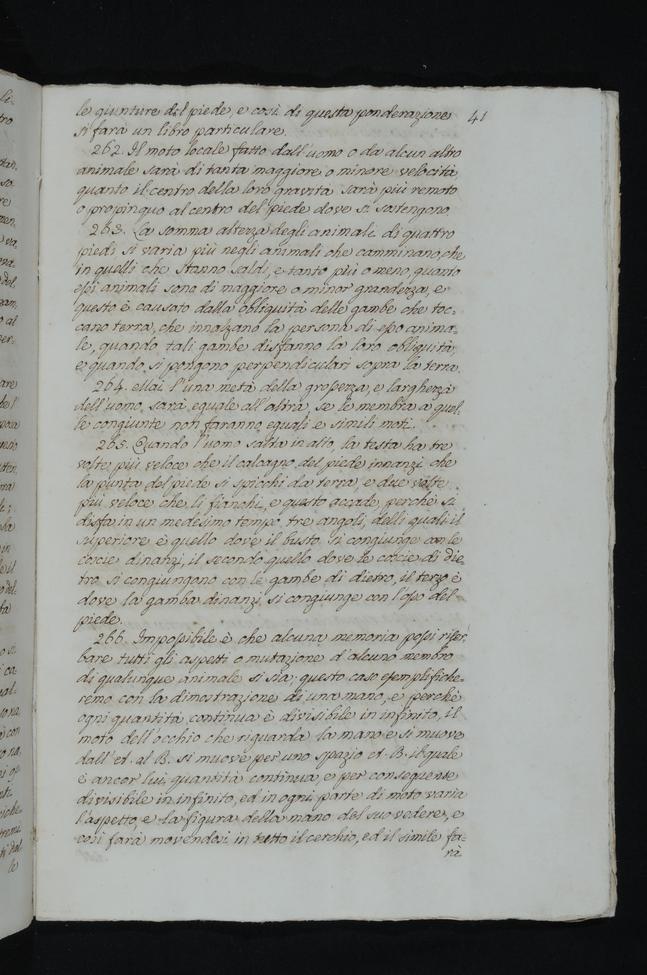 le giunture del piede, e così di questa ponderazione 41
si farà un libro particulare.
262. Il moto locale fatto dall'uomo o da alcun altro
animale sarà di tanta maggiore o minore velocità
quanto il centro della loro gravità sarà più remoto
o propinquo al centro del piede dove si sostengono.
263. La somma altezza degli animali di quattro
piedi si varia più negli animali che camminano, che
in quelli che stanno saldi, e tanto più o meno, quanto
essi animali sono di maggiore o minor grandezza, e
questo è causato dalla obliquità delle gambe che toc=
cano terra, che innalzano la persona di esso anima=
le, quando tali gambe disfanno la loro obliquità,
e quando si pongono perpendiculari sopra la terra.
264. Mai l'una metà della grossezza, e larghezza
dell'uomo, sarà equale all'altra, se le membra a quel=
le congiunte non faranno equali e simili moti.
265. Quando l'uomo salta in alto, la testa ha tre
volte più veloce che il calcagno del piede innanzi che
la punta del piede si spicchi da terra, e due volte
più veloce che li fianchi, e questo accade, perchè si
disfa in un medesimo tempo tre angoli, delli quali il
superiore è quello dove il busto si congiunge con le
coscie dinanzi, il secondo quello dove le coscie di die=
tro si congiungono con le gambe di dietro, il terzo è
dove la gamba dinanzi si congiunge con l'osso del
piede.
266. Impossibile è che alcuna memoria possi riser=
bare tutti gli aspetti o mutazione d'alcuno membro
di qualunque animale si sia; questo caso esemplifiche=
remo con la dimostrazione di una mano, e perchè
ogni quantità continua è divisibile in infinito, il
moto dell'occhio che riguarda la mano e si muove
dall'A. al B. si muove per uno spazio A. B. il quale
è ancor lui quantità continua, e per conseguente
divisibile in infinito, ed in ogni parte di moto varia
l'aspetto, e la figura della mano del suo vedere, e
così farà movendosi in tutto il cerchio, ed il simile fa=
rà